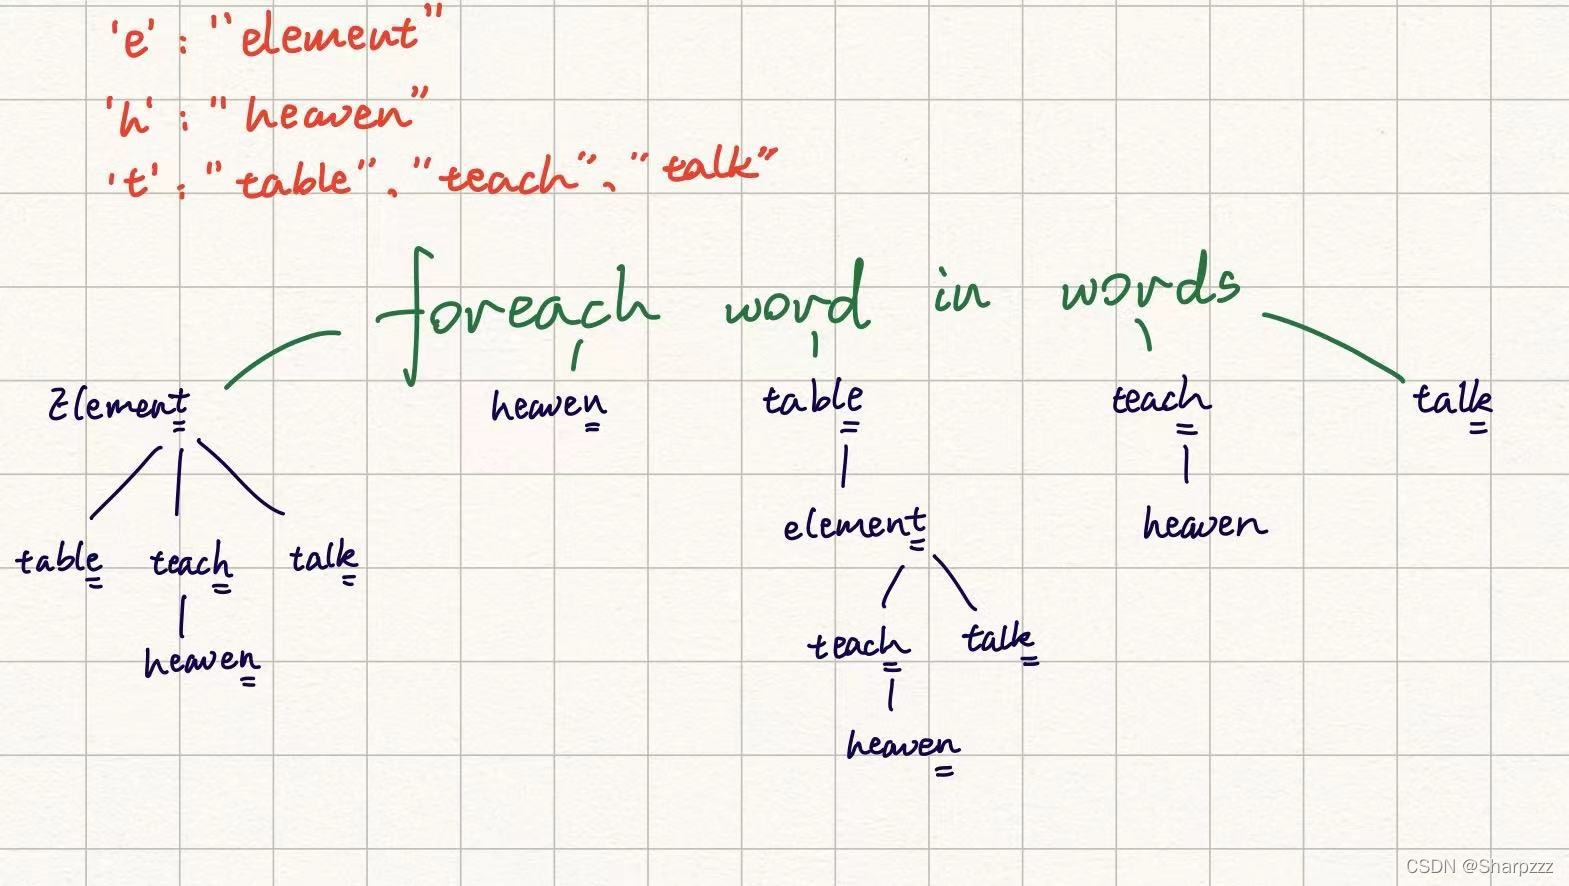 'e' : "element"
'h' : "heaven"
't' : "table"、"teach"、"talk"
foreach word in words
Element heaven table teach talk
element heaven
table teach talk
teach talk
heaven
heaven
CSDN @Sharpzzz